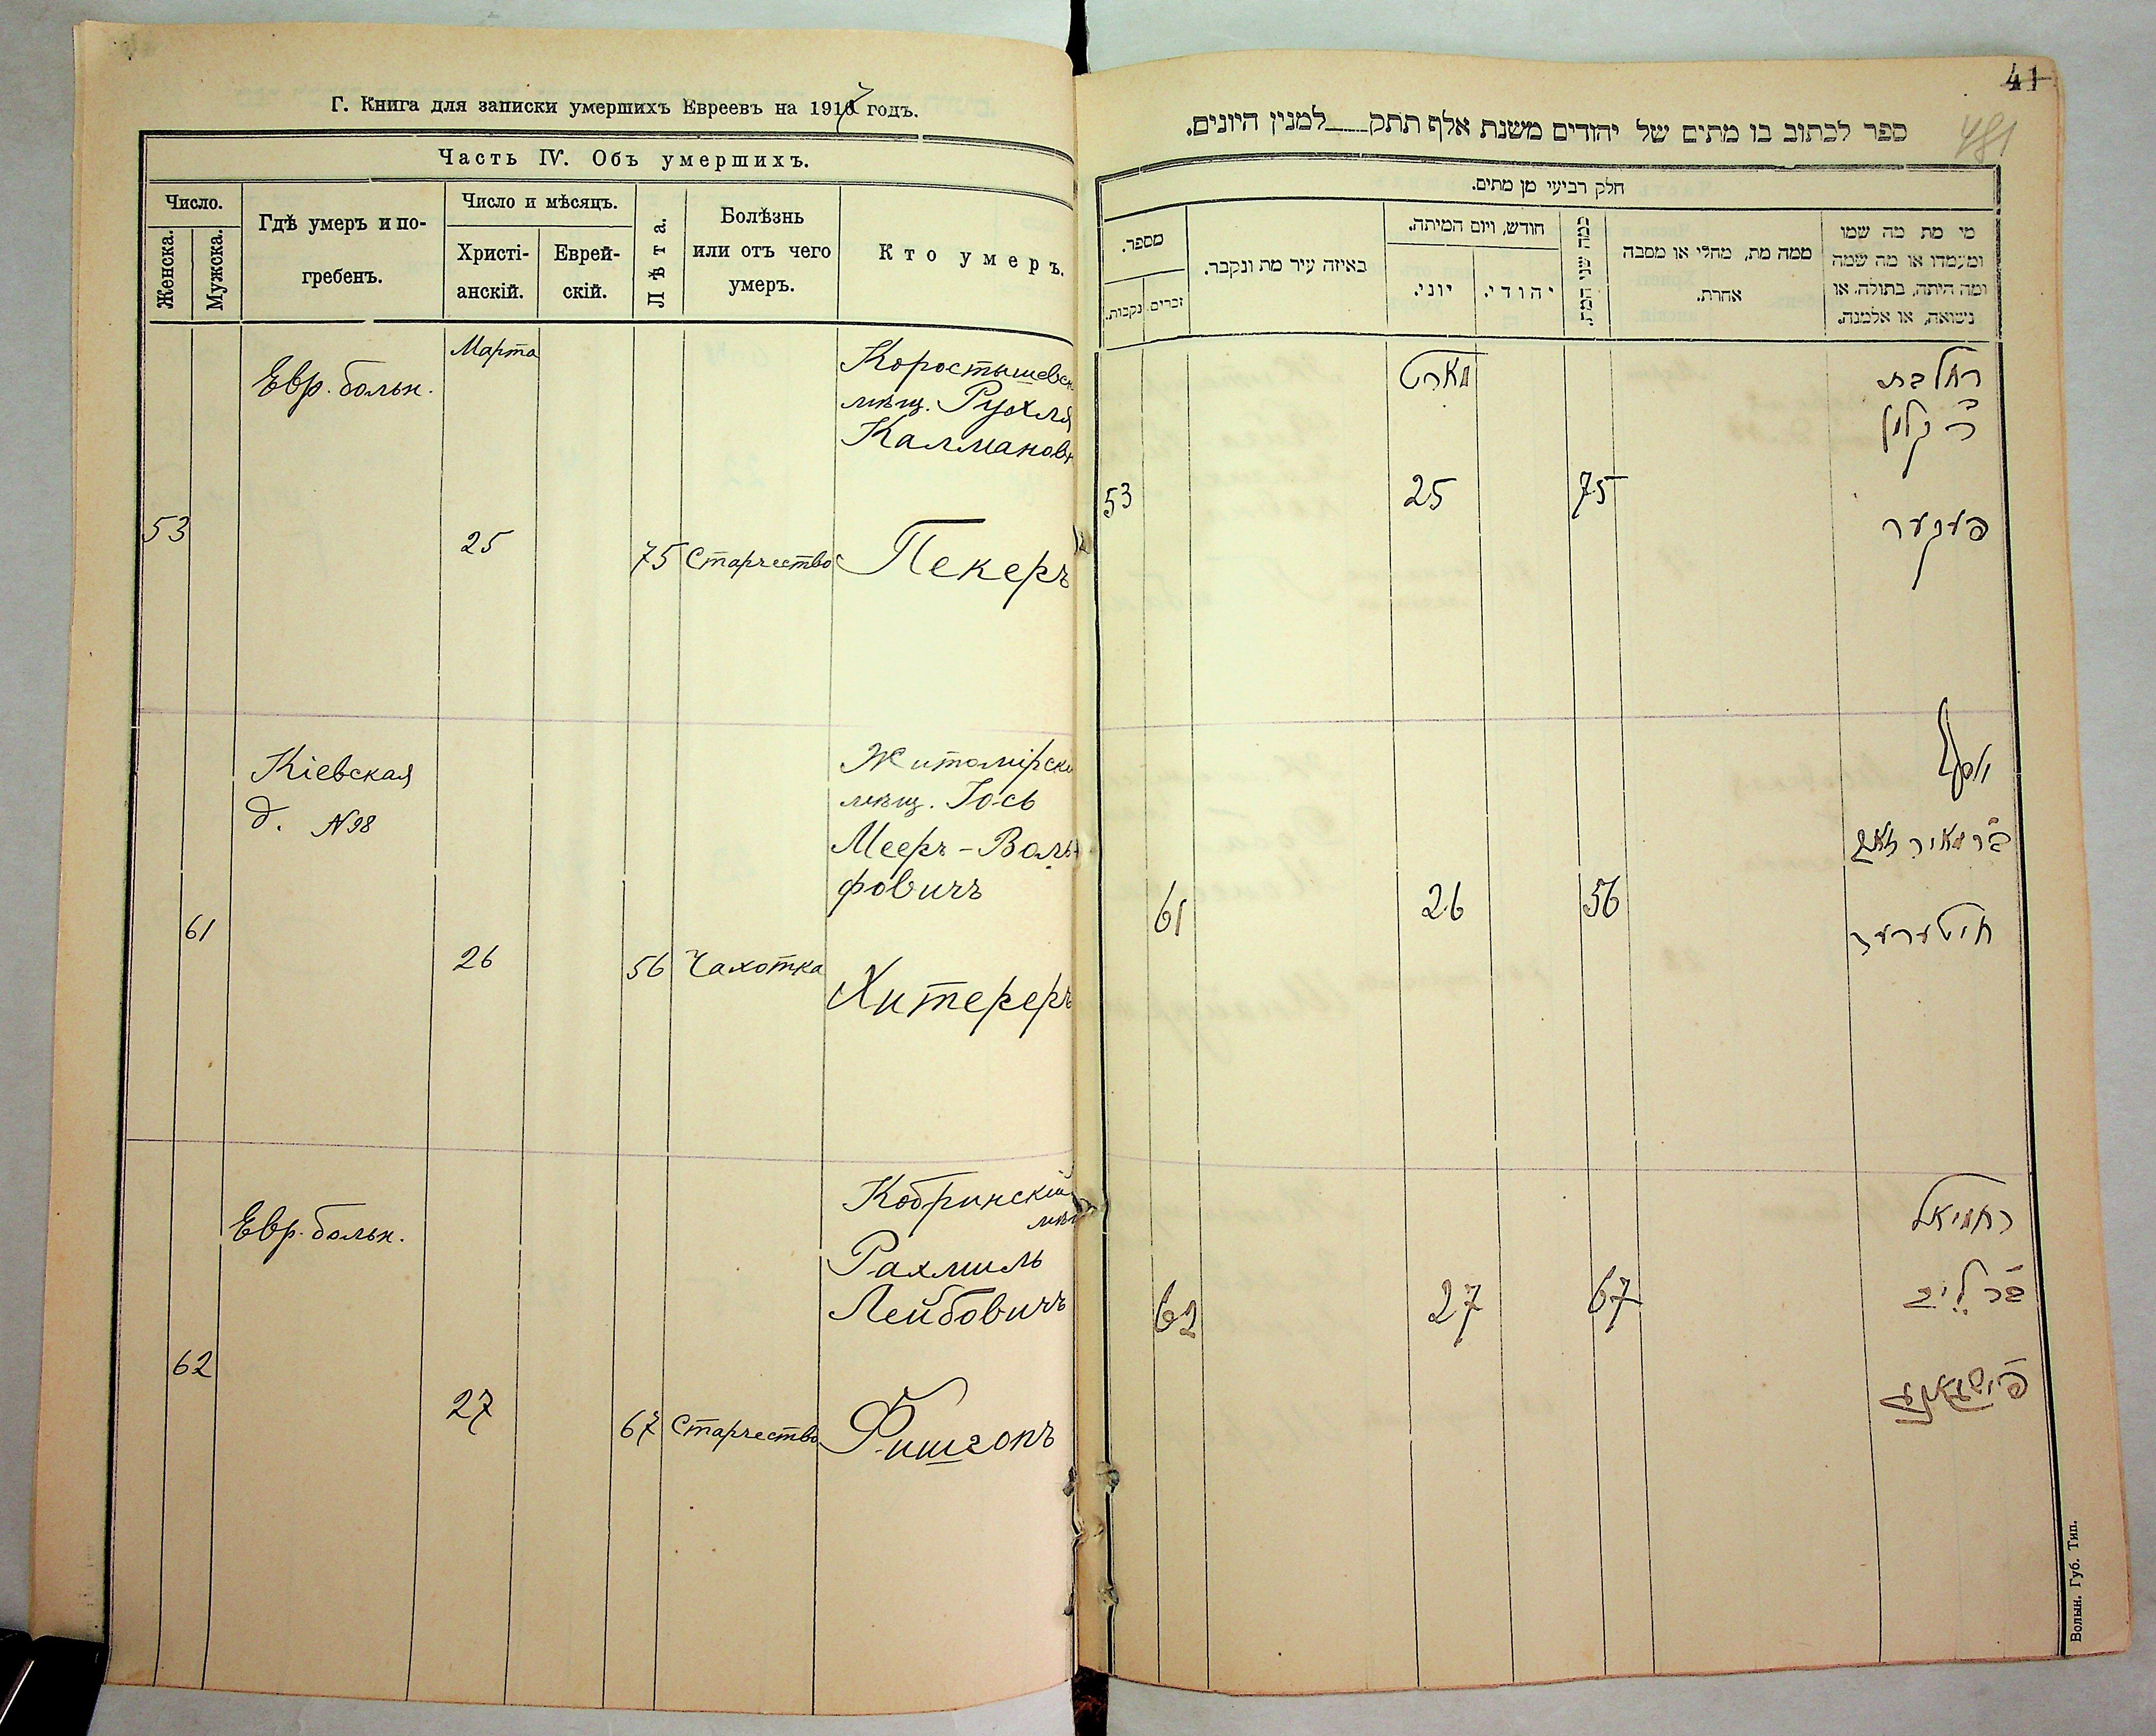 Г. Книга для записки умершихъ Евреевъ на 1917 годъ.
Часть IV. Объ умершихъ.
Число.
Женска.
Мужска.
Гдѣ умеръ и по-
гребенъ.
Число и мѣсяцъ.
Христі-
анскій.
Еврей-
скій.
Лѣта.
Болѣзнь
или отъ чего
умеръ.
Кто умеръ.
53
Евр. больн.
Марта
25
75
Старчество
Коростышевск
мѣщ. Рухля
Калмановн
Пекеръ
61
Кіевская
д. N 98
26
56
Чахотка
Житомірск
мѣщ. Іось
Мееръ-Воль
фовичъ
Хитереръ
62
Евр. больн.
27
67
Старчество
Кобринскій
мѣщ
Рахмиль
Лейбовичъ
Фишгонъ
41
481
ספר לכתוב בו מתים של יהודים משנת אלף תתק___למנין היונים.
חלק רביעי מן מתים.
מי מת מה שמו
ומעמדו או מה שמה
ומה היתה, בתולה, או
נשואה, או אלמנה.
ממה מת, מחלי או מסבה
אחרת.
כמה שני המת
חודש, ויום המיתה.
יהודי.
יוני.
באיזה עיר מת ונקבר.
מספר.
זכרים.
נקבות.
מארט
25
75
53
פעקער
יוסף
בר מאיר וואלף
26
56
61
חיטערער
ירחמיאל
בר לייב
27
67
62
Волын. Губ. Тип.